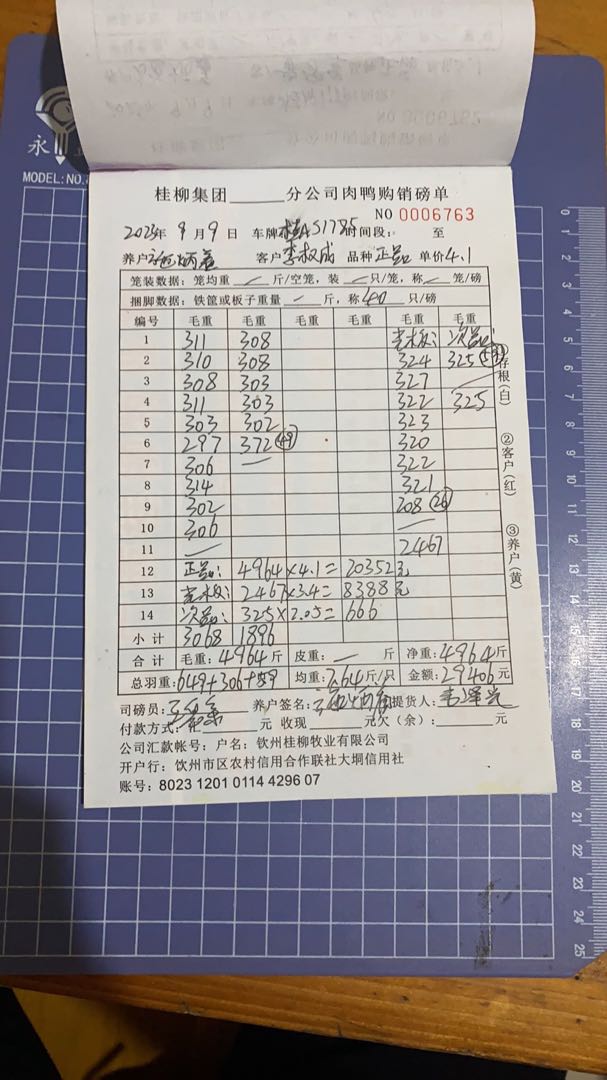 永
MODEL:NO.
桂柳集团 分公司肉鸭购销磅单
NO 0006763
2023年 9月 9日 车牌 桂AS1775 时间段: 至
养户 客户 李权成 品种 正品 单价 4.1
笼装数据: 笼均重 / 斤/空笼, 装 / 只/笼, 称 / 笼/磅
捆脚数据: 铁筐或板子重量 — 斤, 称 40 只/磅
编号 毛重 毛重 毛重 毛重 毛重 毛重
1 311 308 次品:
2 310 308 324 325
3 308 303 327 /
4 311 303 322 325
5 303 302 323
6 297 372 (49) 320
7 306 — 322
8 314 321
9 302 208 (26)
10 306 —
11 — 2467
12 正品: 4964×4.1= 20352元
13 2467×3.4= 8388元
14 次品: 325×2.05= 666
小计 3068 1896
合计 毛重: 4964斤 皮重: — 斤 净重: 4964斤
总羽重: 649+306+59 均重: 7.64斤/只 金额: 29406元
司磅员: 养户签名: 提货人:
付款方式: 元 收现 元欠(余): 元
公司汇款帐号: 户名: 钦州桂柳牧业有限公司
开户行: 钦州市区农村信用合作联社大垌信用社
账号: 8023 1201 0114 4296 07
①存根(白)
②客户(红)
③养户(黄)
0
1
2
3
4
5
6
7
8
9
10
11
12
13
14
15
16
17
18
19
20
21
22
23
24
25